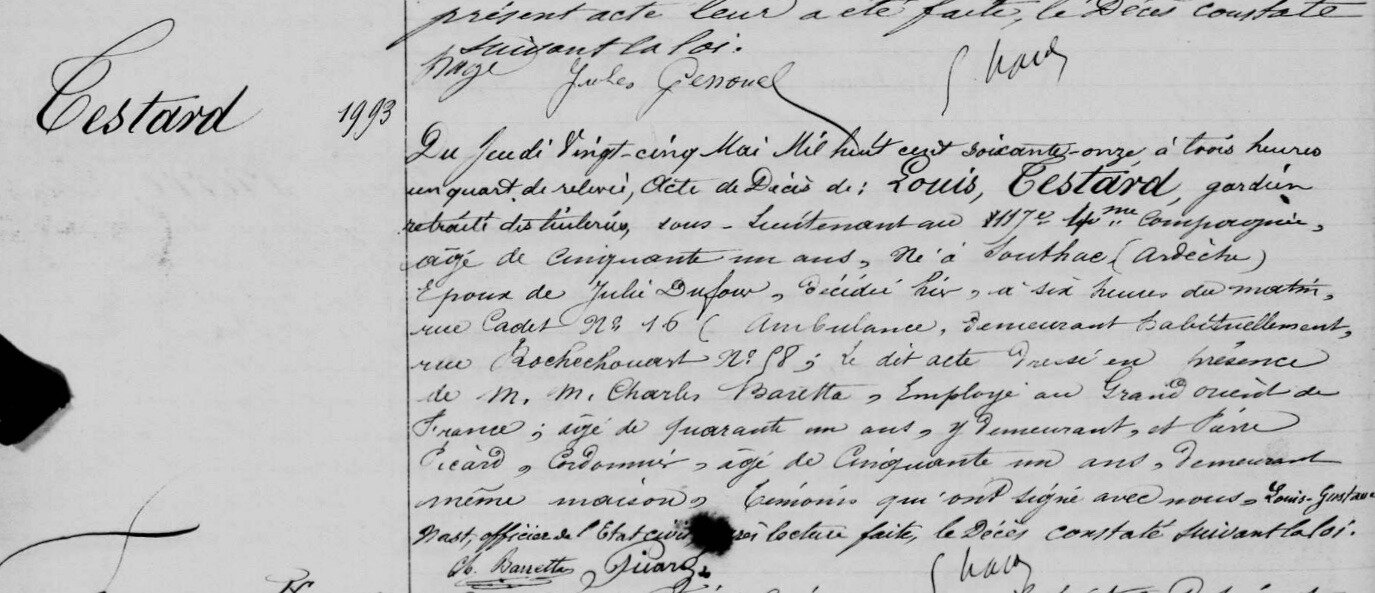 présent acte leur a été faite, le Décès constaté
suivant la loi.
Jules
Testard 1993
Du Jeudi Vingt-cinq Mai Mil huit cent soixante-onze, à trois heures
un quart de relevée, Acte de Décès de: Louis, Testard, gardien
retraité des tuileries, sous-Lieutenant au 117e 4me Compagnie,
âgé de cinquante un ans, Né à (Ardèche)
Epoux de Julie Dufour, décédé hier, à six heures du matin,
rue Cadet No 16 (Ambulance, demeurant habituellement,
rue Rochechouart No 58; Le dit acte dressé en présence
de M. M. Charles Baretta, Employé au Grand orient de
France; âgé de quarante un ans, y demeurant, et Pierre
Picard, Cordonnier, âgé de Cinquante un ans, demeurant
même maison, Témoins qui ont signé avec nous, Louis-Gustave
Nast, officier de l'Etat civil lecture faite, le Décès constaté suivant la loi.
Ch. Barretta Picard